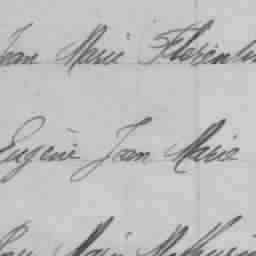 Jean Marie Florentin
Eugène Jean Marie
Marie Mathurin